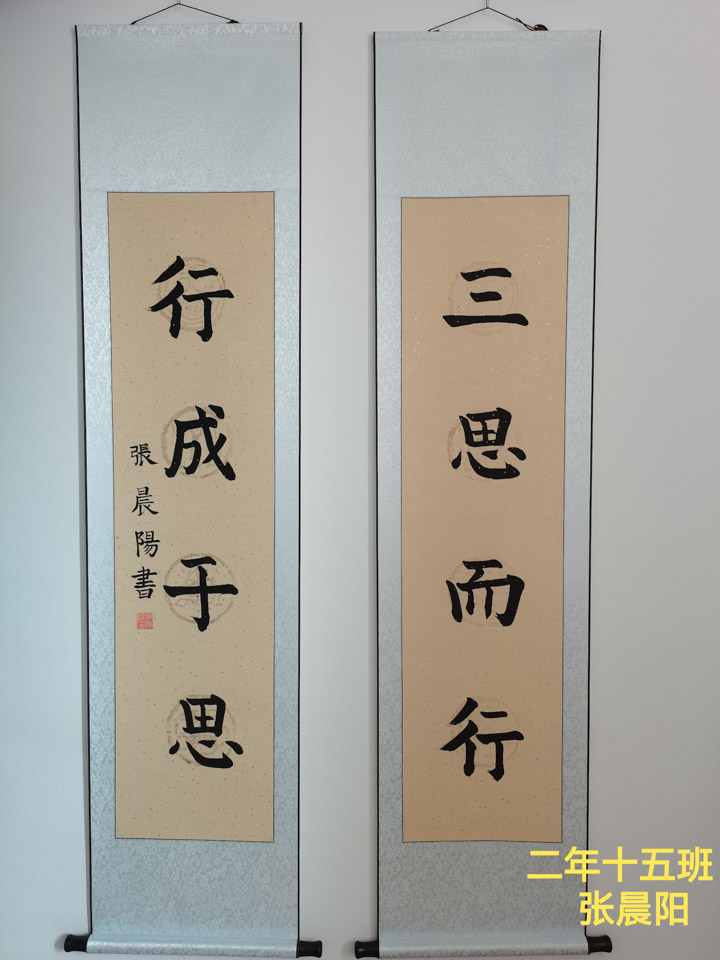 三思而行
行成于思
張晨陽書
二年十五班
张晨阳